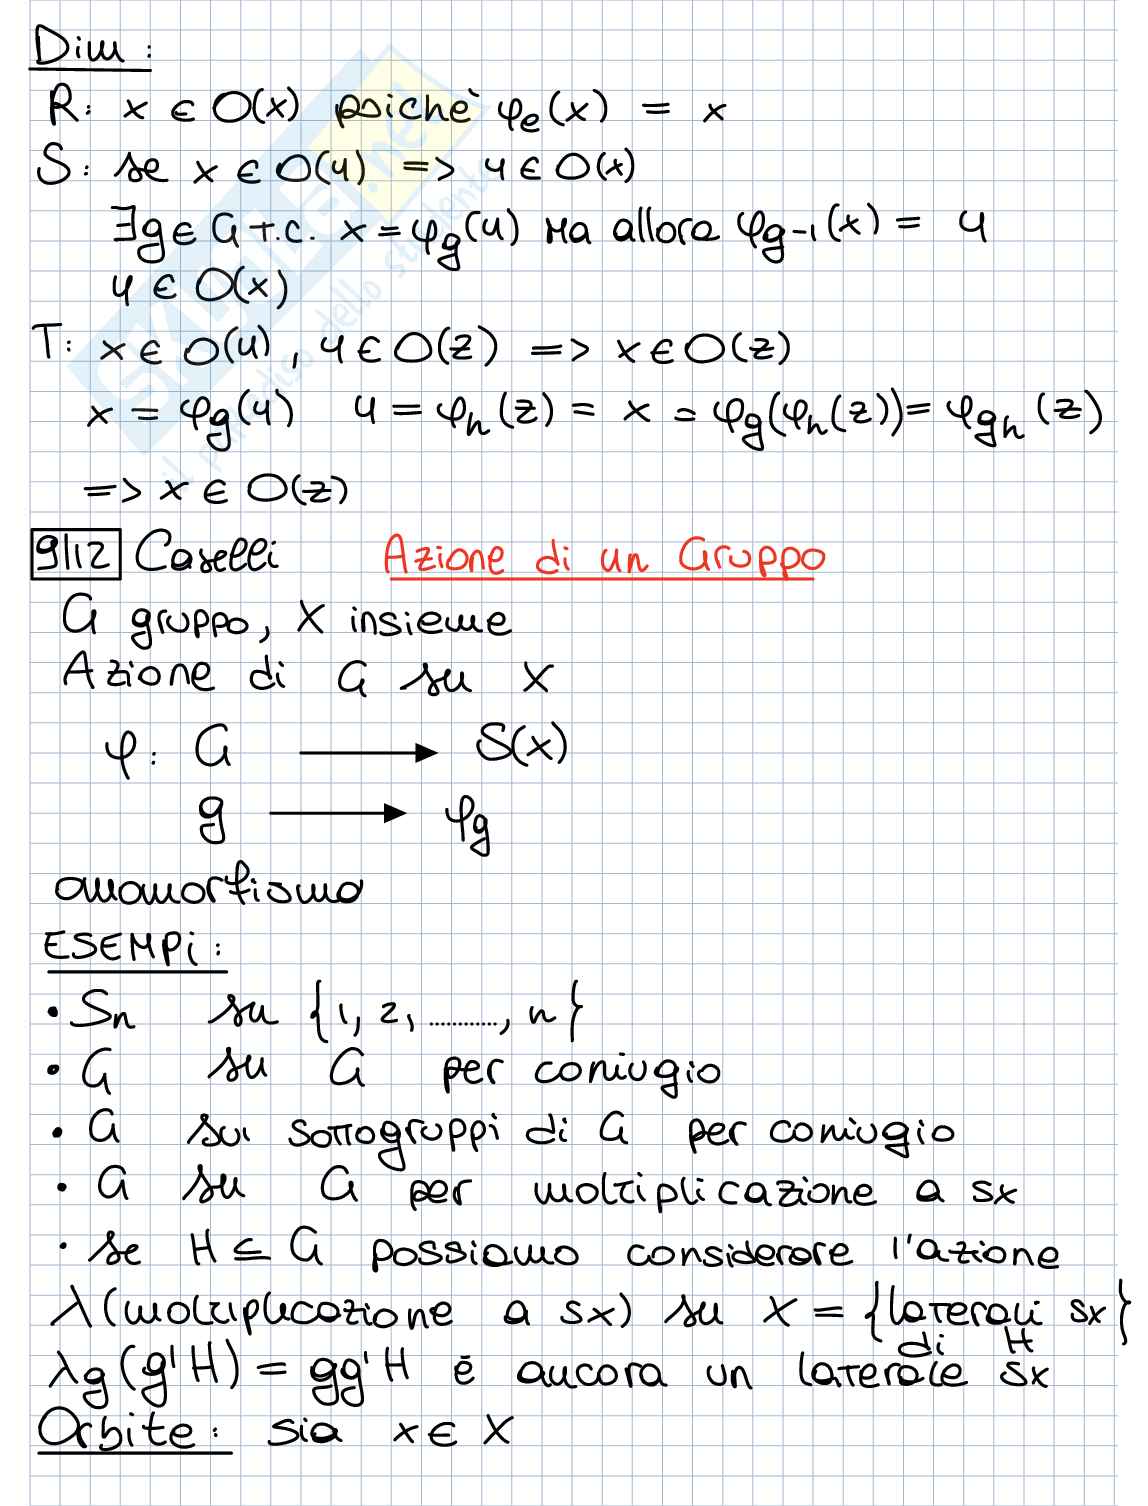 Dim:
R: x ∈ O(x) poichè φe(x) = x
S: se x ∈ O(y) => y ∈ O(x)
∃g ∈ G t.c. x = φg(y) ma allora φg-1(x) = y
y ∈ O(x)
T: x ∈ O(y), y ∈ O(z) => x ∈ O(z)
x = φg(y) y = φh(z) = x = φg(φh(z)) = φgh(z)
=> x ∈ O(z)
9/12 Caselli Azione di un Gruppo
G gruppo, X insieme
Azione di G su X
φ: G → S(x)
g → φg
omomorfismo
ESEMPi:
• Sn su {1, 2, ..........., n}
• G su G per coniugio
• G sui sottogruppi di G per coniugio
• G su G per moltiplicazione a sx
• se H ⊆ G possiamo considerare l'azione
λ (moltiplicazione a sx) su X = {laterali sx di H}
λg(g'H) = gg'H è ancora un laterale sx
Orbite: sia x ∈ X
SKUOLA.net
il paradiso dello studente